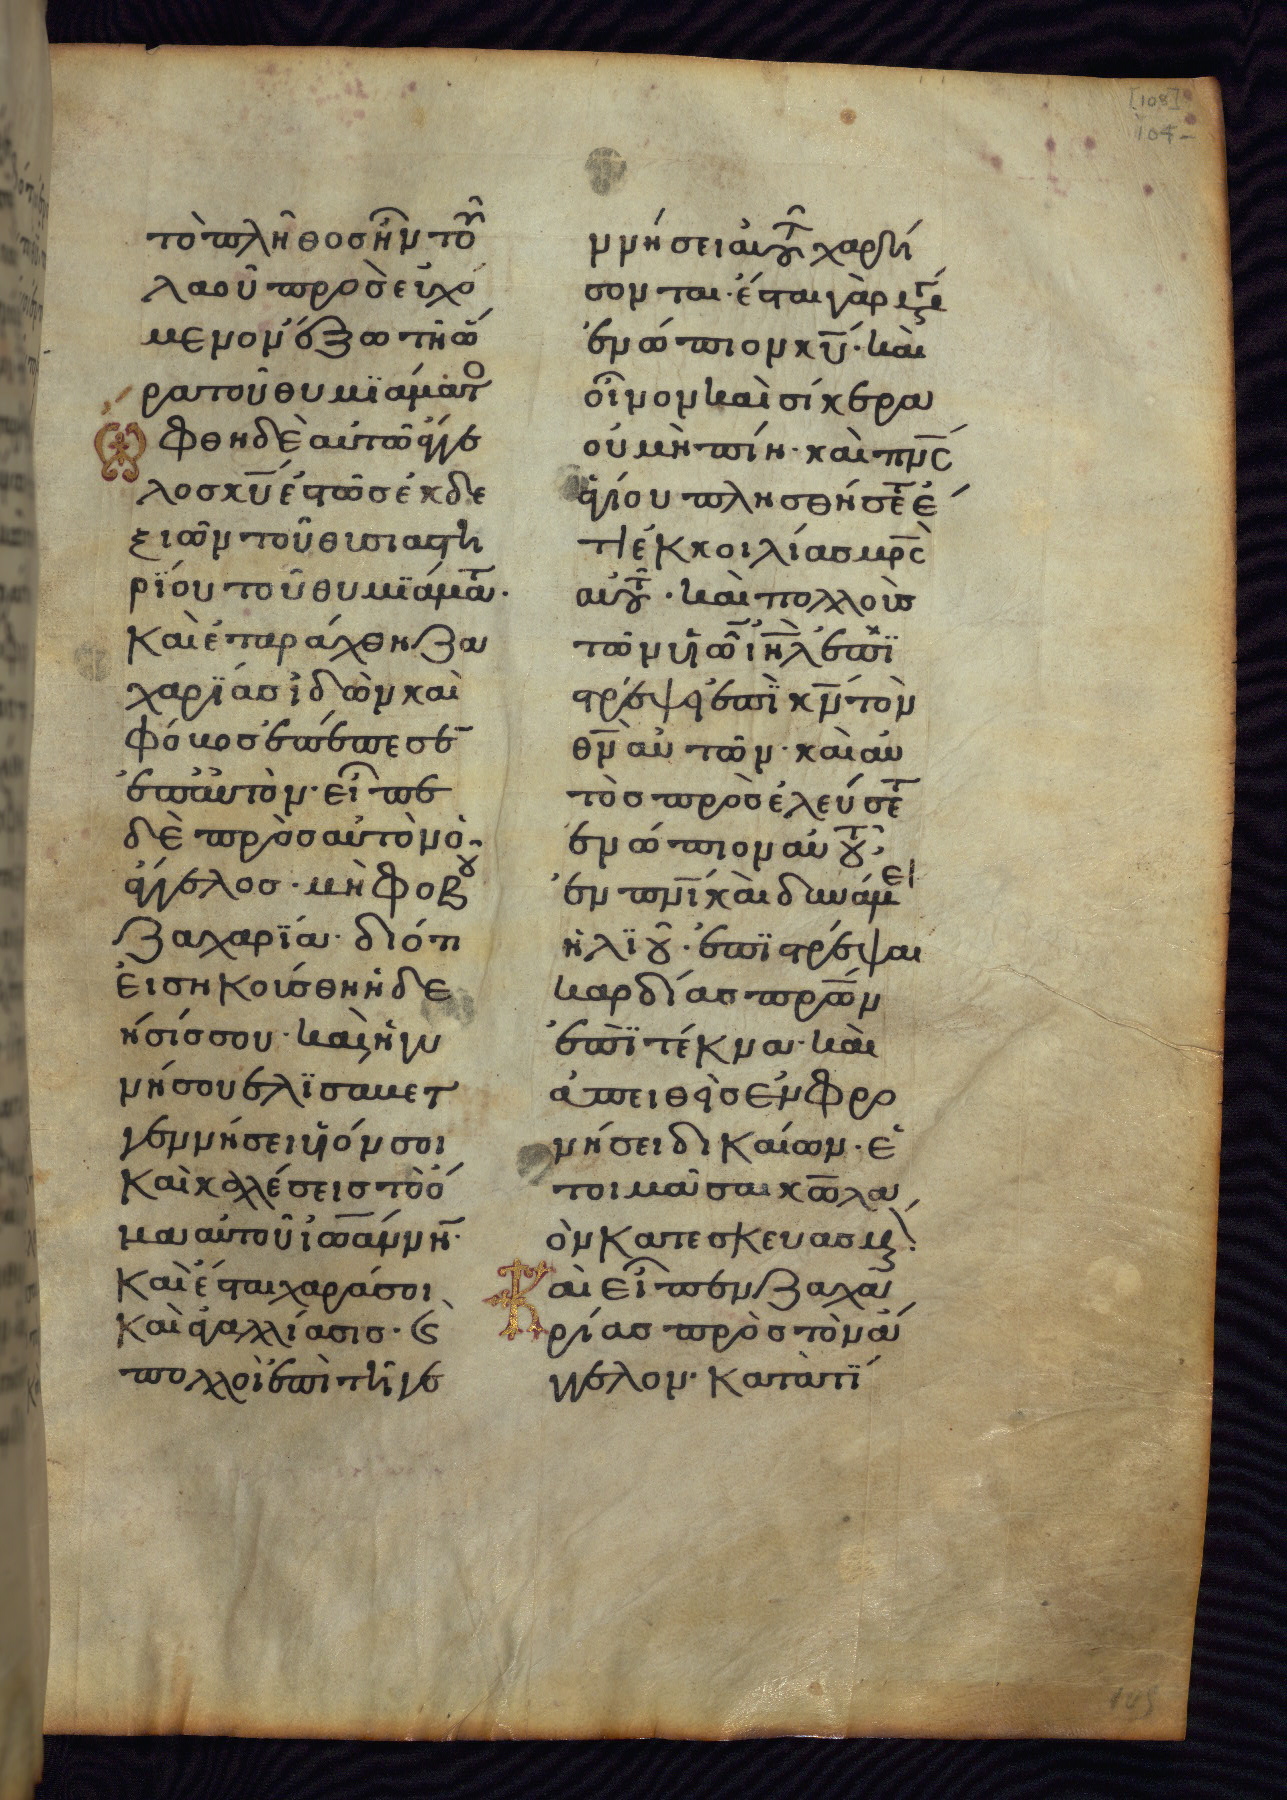 [108]
104-
τὸ πλῆθος ἦν τοῦ
λαοῦ προσευχό
μενον ἔξω τῇ ὥ
ρα τοῦ θυμϊάματο
Ὤφθη δὲ αὐτῶ ἄγγε
λος κ̅υ̅ ἑστὼς ἐκ δε
ξιῶν τοῦ θυσιαστη
ρϊου τοῦ θυμϊάματ·
Καὶ ἐταράχθη ζα
χαρϊας ἰδὼν καὶ
φόβος ἐπέπεσεν
ἐπ' αὐτὸν· εἶπε
δὲ πρὸς αὐτὸν ὁ
ἄγγελος· μὴ φοβου
ζαχαρϊα· διότι
εἰσηκούσθη ἡ δέ
ησίς σου· καὶ ἡ γυ
νή σου ἐλϊσάβετ
γεννήσει υἱόν σοι
Καὶ καλέσεις τὸ ὄ
μα αὐτοῦ ἰωάννην·
Καὶ ἔσται χαρά σοι
Καὶ ἀγαλλίασις· καὶ
πολλοὶ ἐπὶ τῇ γε
ννήσει αὐτοῦ χαρή
σονται· ἔσται γὰρ μέγας
ἐνώπιον κ̅υ̅· καὶ
οἶνον καὶ σίκερα
οὐ μὴ πίῃ· καὶ π̅ν̅ς
ἁγίου πλησθήσεται ἔ
τι ἐκ κοιλίας μ̅ρ̅ς
αὐτοῦ· καὶ πολλοὺς
τῶν υἱῶν ἰ̅η̅λ̅ ἐπι
στρέψει ἐπὶ κ̅ν̅ τὸν
θ̅ν̅ αὐτῶν· καὶ αὐ
τὸς προσελεύσεται
ἐνώπιον αὐτοῦ
ἐν π̅ν̅ι̅ καὶ δυνάμει
ἡλϊοῦ· ἐπϊστρέψαι
καρδίας π̅ρ̅ω̅ν
ἐπὶ τέκνα· καὶ
ἀπειθεῖς ἐν φρο
νήσει δικαίων· ἑ
τοιμᾶσαι κ̅ω̅ λα
ὸν κατεσκευασμένον·
Καὶ εἶπεν ζαχα
ρίας πρὸς τὸν ἄγ
γελον· Κατὰ τί